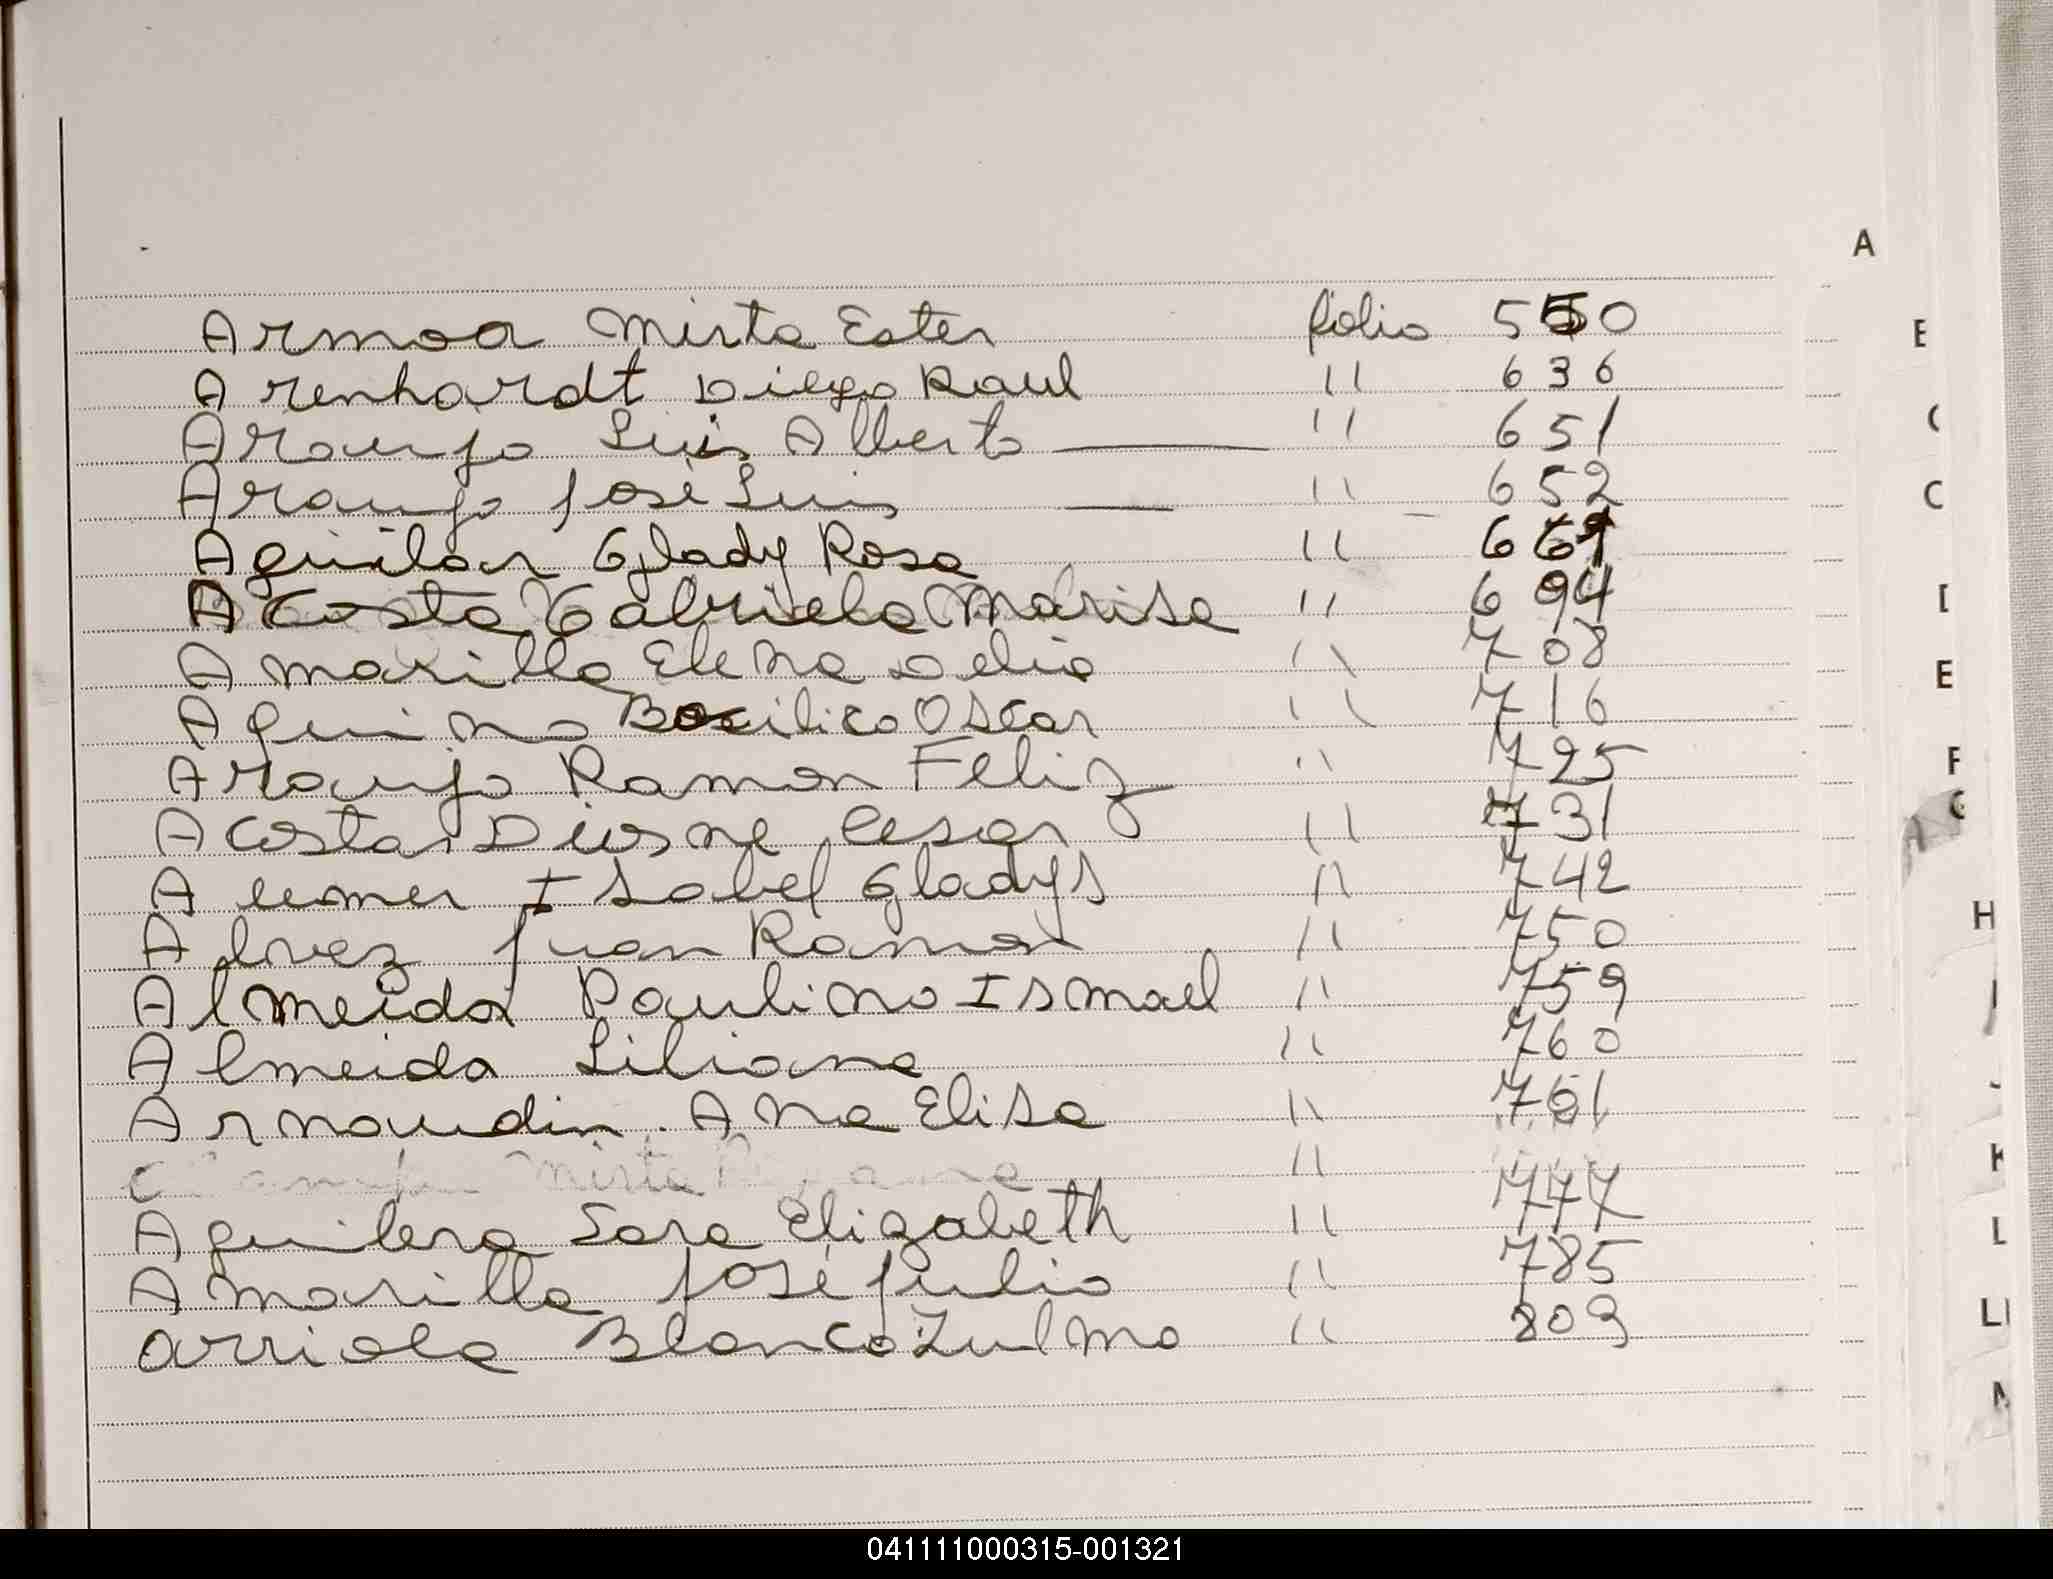 A
Armoa Mirta Ester folio 550
Arenhardt Diego Raul " 636
Araujo Luis Alberto — " 651
Araujo José Luis — " 652
Aguilar Glady Rosa "
Acosta Gabriela Marisa " 694
Amarilla Elena Delia " 708
Aquino Bacilico Oscar " 716
Araujo Ramon Feliz " 725
Acosta Diosne Cesar " 731
Aleomer Isabel Gladys " 742
Alvez Juan Ramon " 750
Almeida Paulino Ismael " 759
Almeida Liliana " 760
Arnaudin. Ana Elisa " 761
Mirta "
Aguilera Sara Elizabeth " 777
Amarilla José Julio " 785
arriola Blanca Zulma " 809
E
C
E
F
G
H
L
041111000315-001321